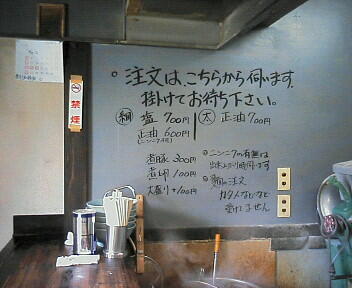 。注文は、こちらから伺います。
掛けてお待ち下さい。
細 塩 700円 太 正油 700円
正油 600円
(ニンニク不可)
煮豚 300円
煮卵 100円
大盛り +100円
。ニンニクの有無は
出来上がり時伺います
。麺の注文
カタメなどなど
受けてません
禁煙